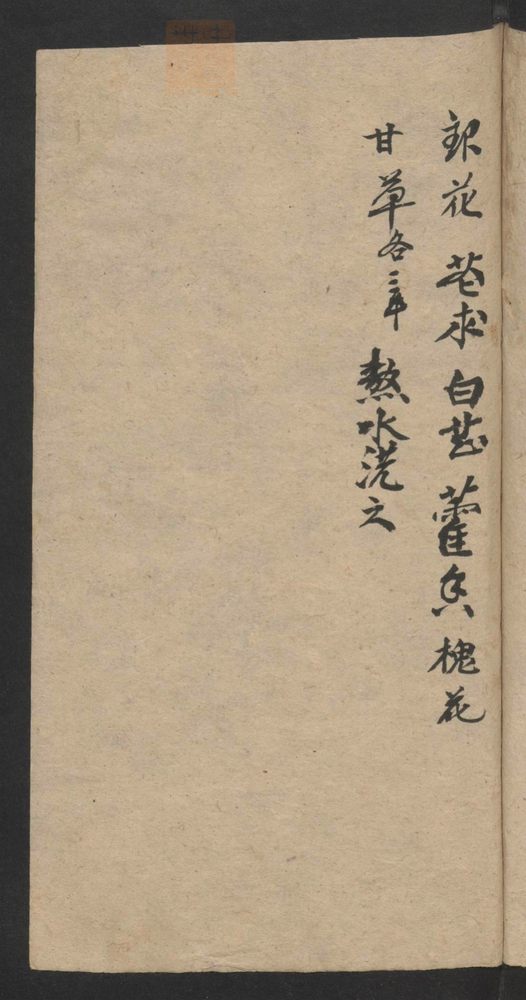 銀花 苍术 白芷 藿香 槐花
甘草各三本 熬水洗之